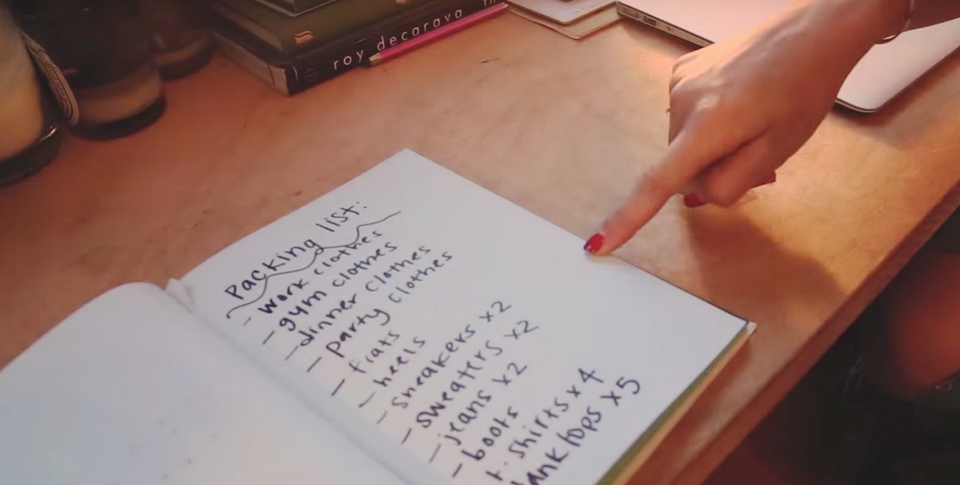 roy decarava
packing list:
- work clothes
- gym clothes
- dinner clothes
- party clothes
- flats
- heels
- sneakers x2
- sweaters x2
- jeans x2
- boots
t-shirts x4
tank tops x5